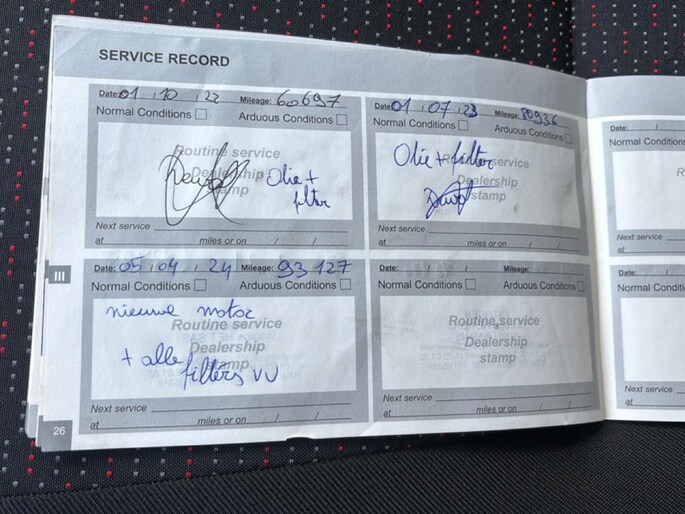 SERVICE RECORD
Date: 01 / 10 / 22 Mileage: 60697
Normal Conditions Arduous Conditions
Routine service
Dealership
stamp
Olie +
filter
Next service
at miles or on / /
Date: 01 / 07 / 23 Mileage: 80936
Normal Conditions Arduous Conditions
Olie + filter
Routine service
Dealership
stamp
Next service
at miles or on / /
Date: 05 / 04 / 24 Mileage: 93 127
Normal Conditions Arduous Conditions
nieuwe motor
Routine service
Dealership
stamp
+ alle filters VV
Next service
at miles or on / /
Date: / / Mileage:
Normal Conditions Arduous Conditions
Routine service
Dealership
stamp
Next service
at miles or on / /
III
26
Date: /
Normal Conditions
Next service
at
Date: /
Normal Conditi
Next service
at